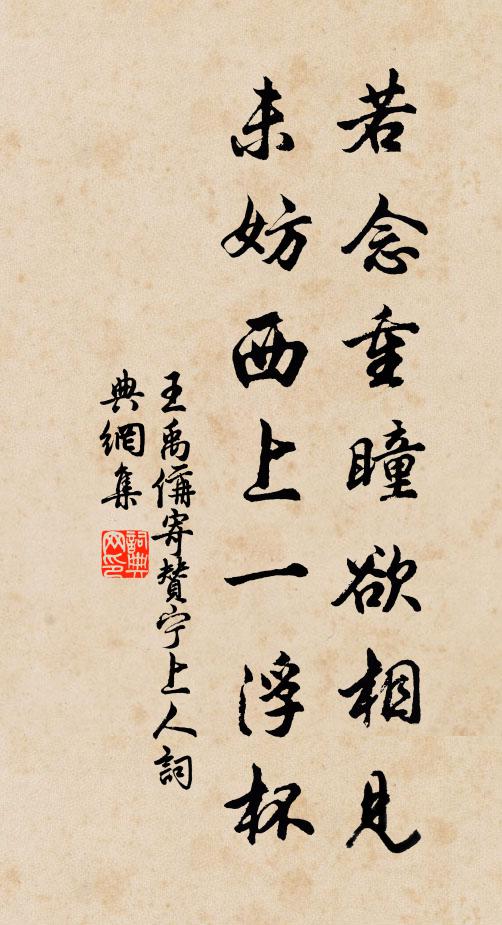 若念重瞳欲相見
未妨西上一浮杯
王禹偁寄贊宁上人詞
典網集
詞典网印